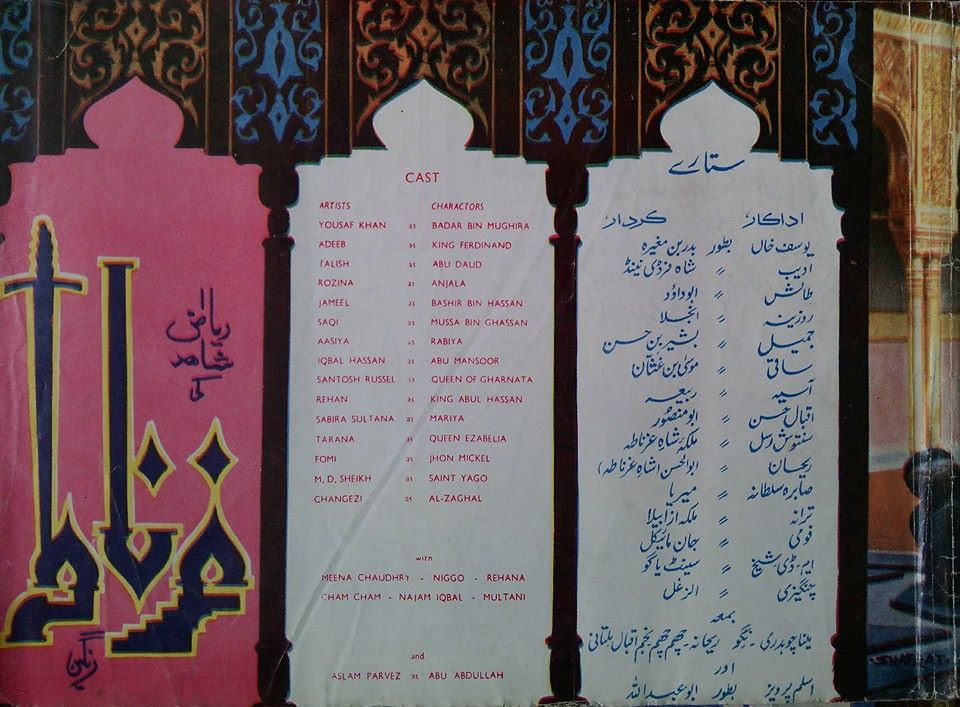 ریاض
شاہد
کی
غرناطہ
رنگین
CAST
ARTISTS CHARACTORS
YOUSAF KHAN as BADAR BIN MUGHIRA
ADEEB as KING FERDINAND
TALISH as ABU DAUD
ROZINA as ANJALA
JAMEEL as BASHIR BIN HASSAN
SAQI as MUSSA BIN GHASSAN
AASIYA as RABIYA
IQBAL HASSAN as ABU MANSOOR
SANTOSH RUSSEL as QUEEN OF GHARNATA
REHAN as KING ABUL HASSAN
SABIRA SULTANA as MARIYA
TARANA as QUEEN EZABELIA
FOMI as JHON MICKEL
M, D, SHEIKH as SAINT YAGO
CHANGEZI as AL-ZAGHAL
with
MEENA CHAUDHRY - NIGGO - REHANA
CHAM CHAM - NAJAM IQBAL - MULTANI
and
ASLAM PARVEZ as ABU ABDULLAH
ستارے
اداکار کردار
یوسف خاں بطور بدر بن مغیرہ
ادیب 〃 شاہ فرڈی نینڈ
طالش 〃 ابوداؤد
روزینہ 〃 انجلا
جمیل 〃 بشیر بن حسن
ساقی 〃 موسیٰ بن غسّان
آسیہ 〃 ربیعہ
اقبال حسن 〃 ابو منصُور
سنتوش رسل 〃 ملکۂ شاہِ غرناطہ
ریحان 〃 ابوالحسن (شاہ غرناطہ)
صابرہ سلطانہ 〃 میریا
ترانہ 〃 ملکہ ازابیلا
فومی 〃 جان مائیکل
ایم۔ڈی شیخ 〃 سینٹ یاگو
چنگیزی 〃 الزغل
بمعہ
مینا چوہدری۔ نِگو ریحانہ۔ چھم چھم نجم اقبال ملتانی
اور
اسلم پرویز بطور ابو عبداللہ